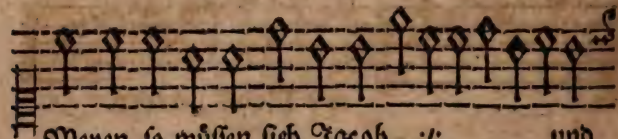 so müssen sich Jacob :/: und